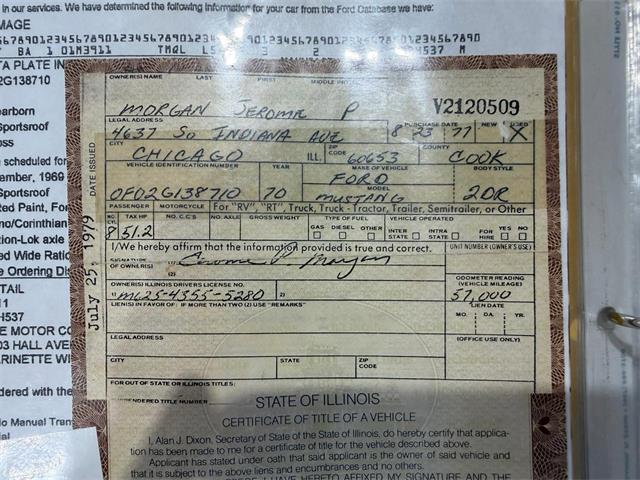 in our services. We have determined the following information for your car from the Ford Database we have:
MAGE
5678901234567890123456789012345678901234567890
BA 1 01M3911 TMQL L5 3 2 537 M
TA PLATE IN
2G138710
earborn
Sportsroof
oss
scheduled for
ember, 1969
Sportsroof
ted Paint, For
no/Corinthian
tion-Lok axle
ed Wide Ratio
e Ordering Dis
TAIL
11
H537
E MOTOR CO
03 HALL AVEN
ARINETTE WI
dered with the
io Manual Tran
ial
DATE ISSUED
July 25, 1979
OWNER(S) NAME LAST FIRST MIDDLE INITIAL
MORGAN JEROME P
V2120509
LEGAL ADDRESS PURCHASE DATE NEW USED
4637 So INDIANA AVE 8 23 77 X
CITY ZIP CODE COUNTY
CHICAGO ILL. 60653 COOK
VEHICLE IDENTIFICATION NUMBER YEAR MAKE OF VEHICLE BODY STYLE
FORD
MODEL
0F02G138710 70 MUSTANG 2DR
PASSENGER MOTORCYCLE For "RV", "RT", Truck, Truck - Tractor, Trailer, Semitrailer, or Other
NO. CYL TAX HP NO. C.C'S NO. AXLE GROSS WEIGHT TYPE OF FUEL VEHICLE OPERATION
8 51.2 GAS DIESEL OTHER INTER STATE INTRA STATE FOR HIRE YES NO
I/We hereby affirm that the information provided is true and correct. UNIT NUMBER (OWNER'S USE)
SIGNATURE OF OWNER(S) (1) Jerome P Morgan
(2)
ODOMETER READING (VEHICLE MILEAGE)
OWNER(S) ILLINOIS DRIVERS LICENSE NO.
1) M625-4355-5280 2) 57,000
LIEN(S) IN FAVOR OF: IF MORE THAN TWO (2) USE "REMARKS" LIEN DATE
MO. DA. YR.
LEGAL ADDRESS (OFFICE USE ONLY)
CITY STATE ZIP CODE
FOR OUT OF STATE OR ILLINOIS TITLES:
SURRENDERED TITLE NUMBER
STATE OF ILLINOIS
CERTIFICATE OF TITLE OF A VEHICLE
I, Alan J. Dixon, Secretary of State of the State of Illinois, do hereby certify that applica-
tion has been made to me for a certificate of title for the vehicle described above.
Applicant has stated under oath that said applicant is the owner of said vehicle and
that it is subject to the above liens and encumbrances and no others.
I HAVE HERETO AFFIXED MY SIGNATURE AND THE